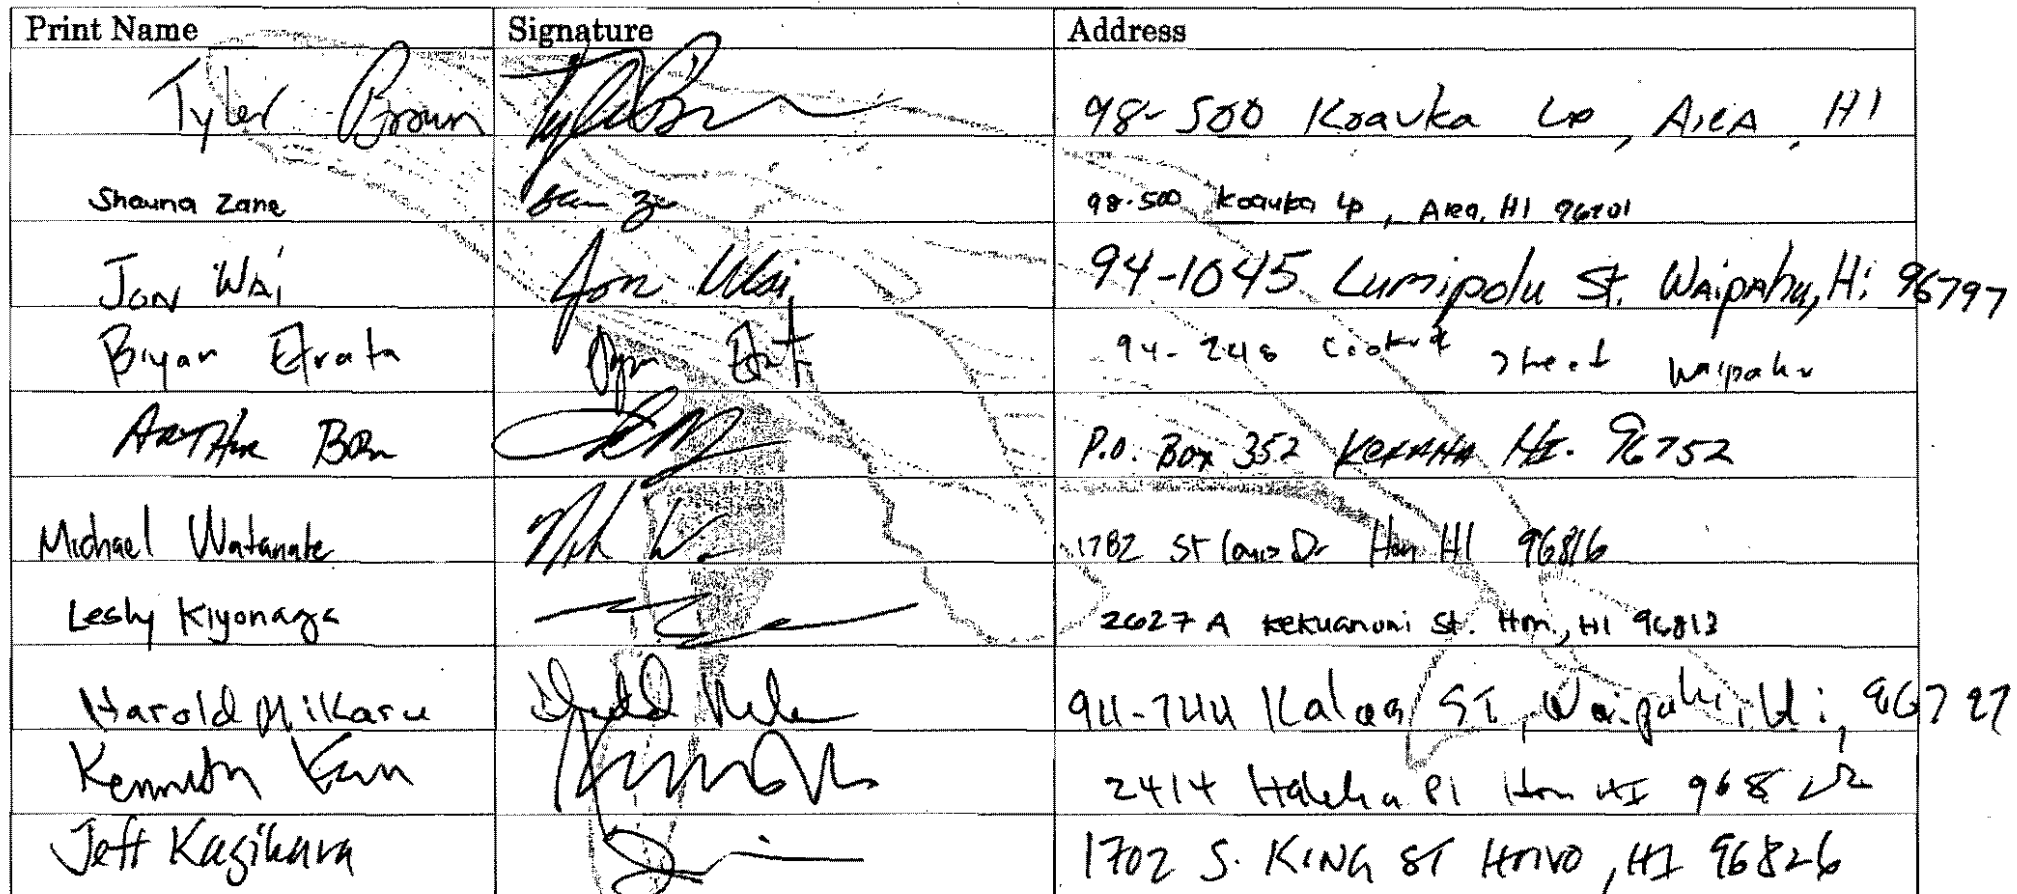 Print Name Signature Address
Tyler Brown 98-500 Koauka Lp, Aiea, HI
Shauna Zane 98-500 Koauka Lp, Aiea, HI 96701
Jon Wai Jon Wai 94-1045 Lumipolu St. Waipahu, Hi 96797
Bryan Efrata 94-248 Street Waipahu
Arthur P.O. Box 352 Kekaha HI. 96752
Michael Watanabe 1782 St Louis Dr Hon HI 96816
Kiyonaga 2627 A St. Hon., HI 96813
Harold Mikaru 94-744 St, Waipahu, Hi, 96797
Kenneth 2414 Pl Hon HI
Jeff Kagihara 1702 S. KING ST HI 96826